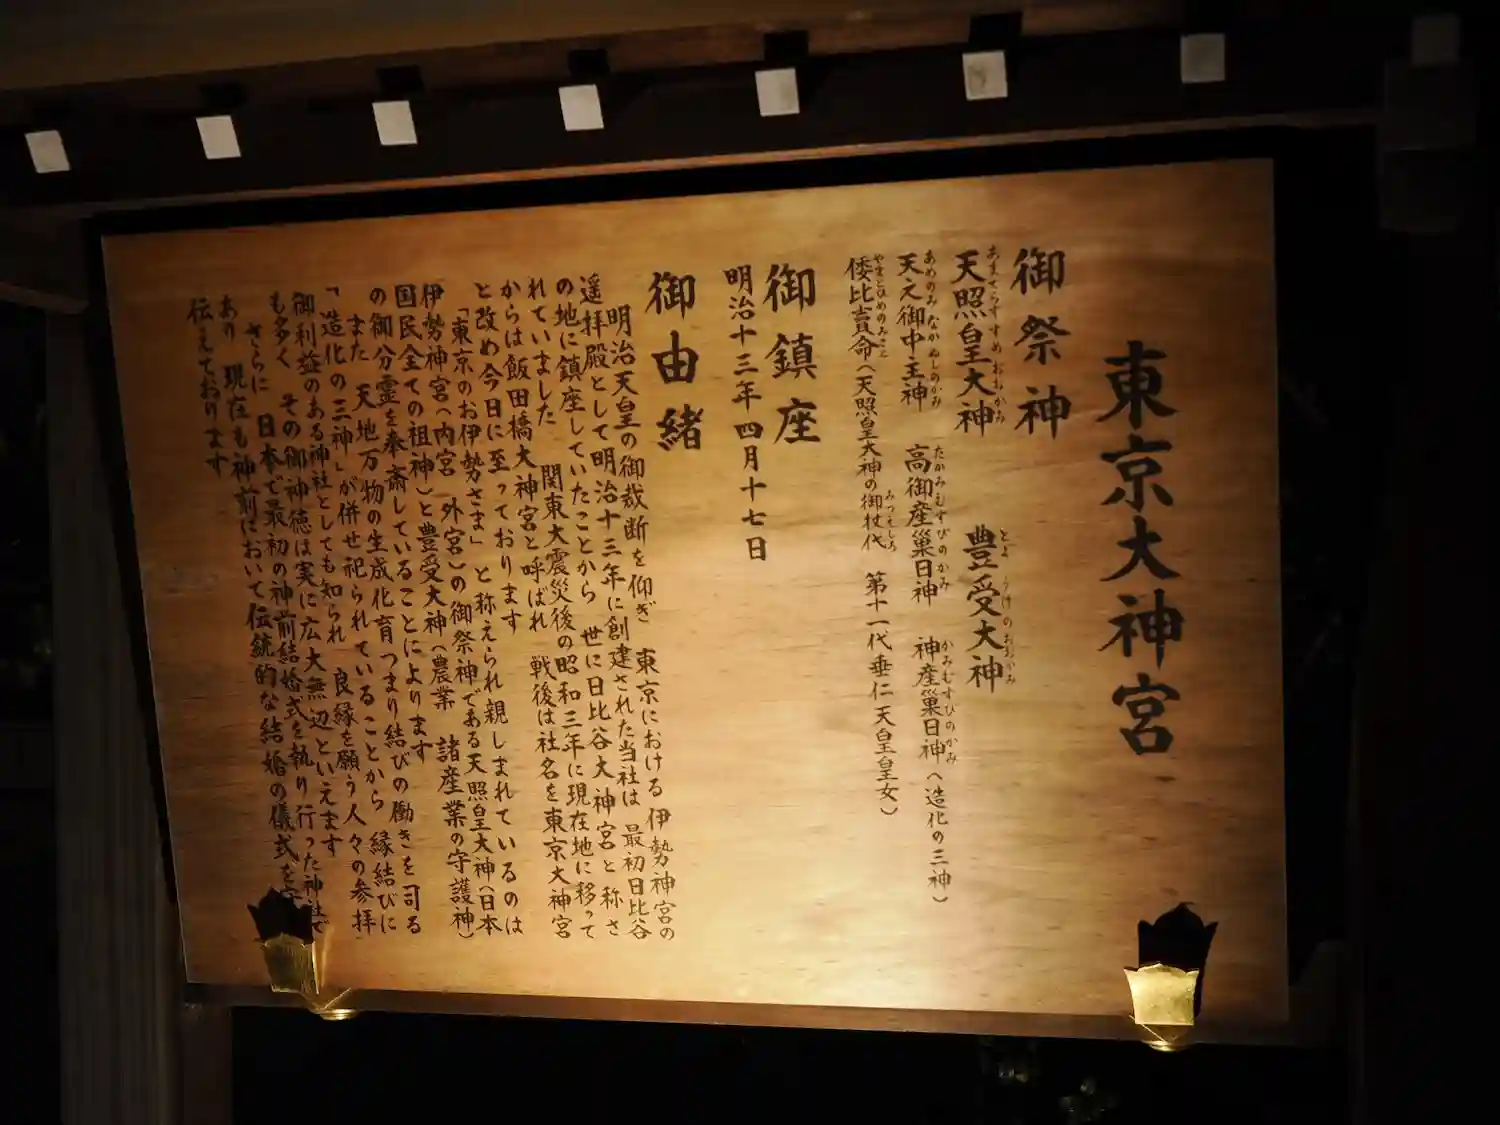 東京大神宮
御祭神
天照皇大神 豊受大神
あまてらすすめおおかみ とようけのおおかみ
天之御中主神 高御産巣日神 神産巣日神（造化の三神）
あめのみなかぬしのかみ たかみむすびのかみ かみむすびのかみ
倭比賣命（天照皇大神の御杖代 第十一代垂仁天皇皇女）
やまとひめのみこと みつえしろ
御鎮座
明治十三年四月十七日
御由緒
明治天皇の御裁断を仰ぎ 東京における伊勢神宮の
遥拝殿として明治十三年に創建された当社は 最初日比谷
の地に鎮座していたことから 世に日比谷大神宮と称さ
れていました 関東大震災後の昭和三年に現在地に移って
からは飯田橋大神宮と呼ばれ 戦後は社名を東京大神宮
と改め今日に至っております
「東京のお伊勢さま」と称えられ親しまれているのは
伊勢神宮（内宮 外宮）の御祭神である天照皇大神（日本
国民全ての祖神）と豊受大神（農業 諸産業の守護神）
の御分霊を奉斎していることによります
また 天地万物の生成化育つまり結びの働きを司る
「造化の三神」が併せ祀られていることから 縁結びに
御利益のある神社としても知られ 良縁を願う人々の参拝
も多く その御神徳は実に広大無辺といえます
さらに 日本で最初の神前結婚式を執り行った神社で
あり 現在も神前において伝統的な結婚の儀式を
伝えております